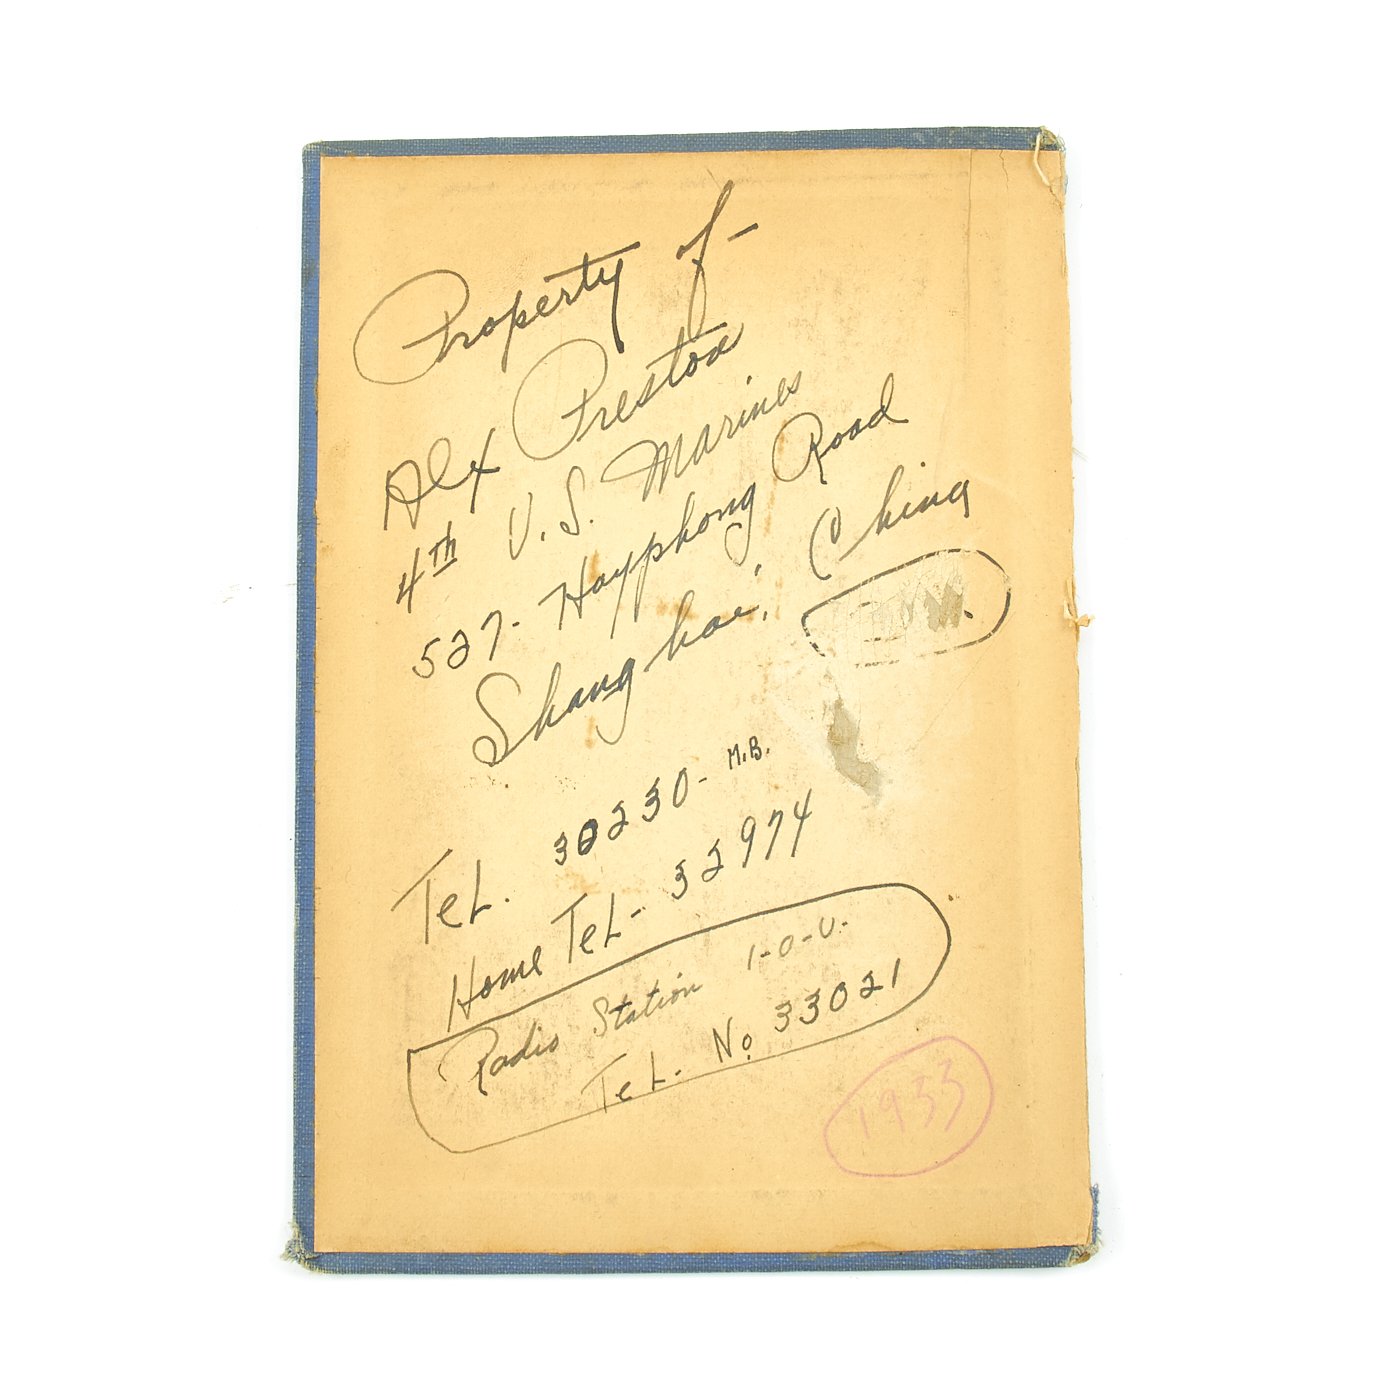 Property of -
Alex Preston
4th U.S. Marines
527- Hayphong Road
Shanghai, China
Tel. 30230- M.B.
Home Tel- 32974
Radio Station 1-0-U-
Tel. No 33021
1933